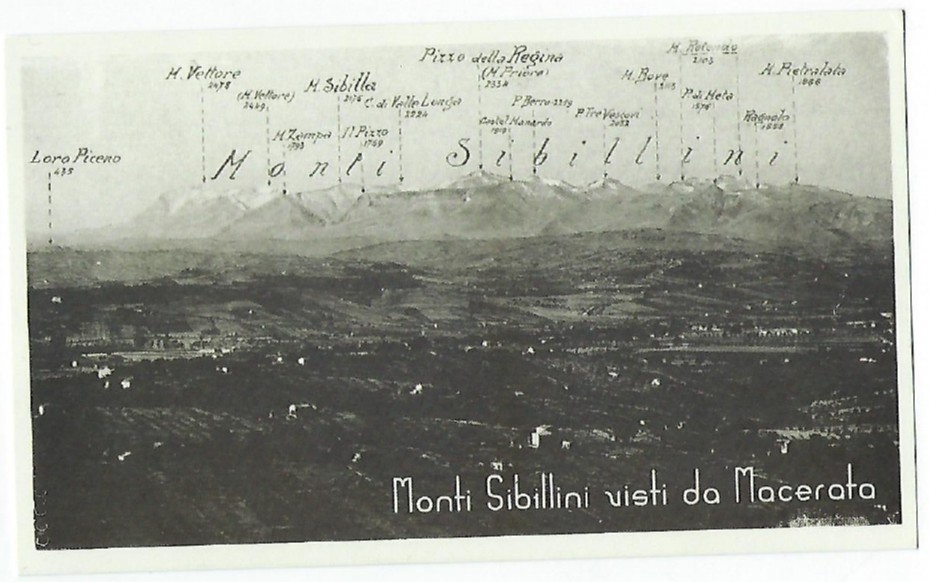 Pizzo della Regina
(M. Priore)
2334
M. Rotondo
2103
M. Vettore
2478
(M. Vettore)
M. Sibilla
2175
C. di Valle Lunga
2224
M. Bove
M. Pietralata
1888
P. Berro 2259
P. di Meta
Castel Manardo
P. Tre Vescovi
2092
Ragnolo
M. Zampa
1793
Il Pizzo
1769
Loro Piceno
435
Monti Sibillini
Monti Sibillini visti da Macerata